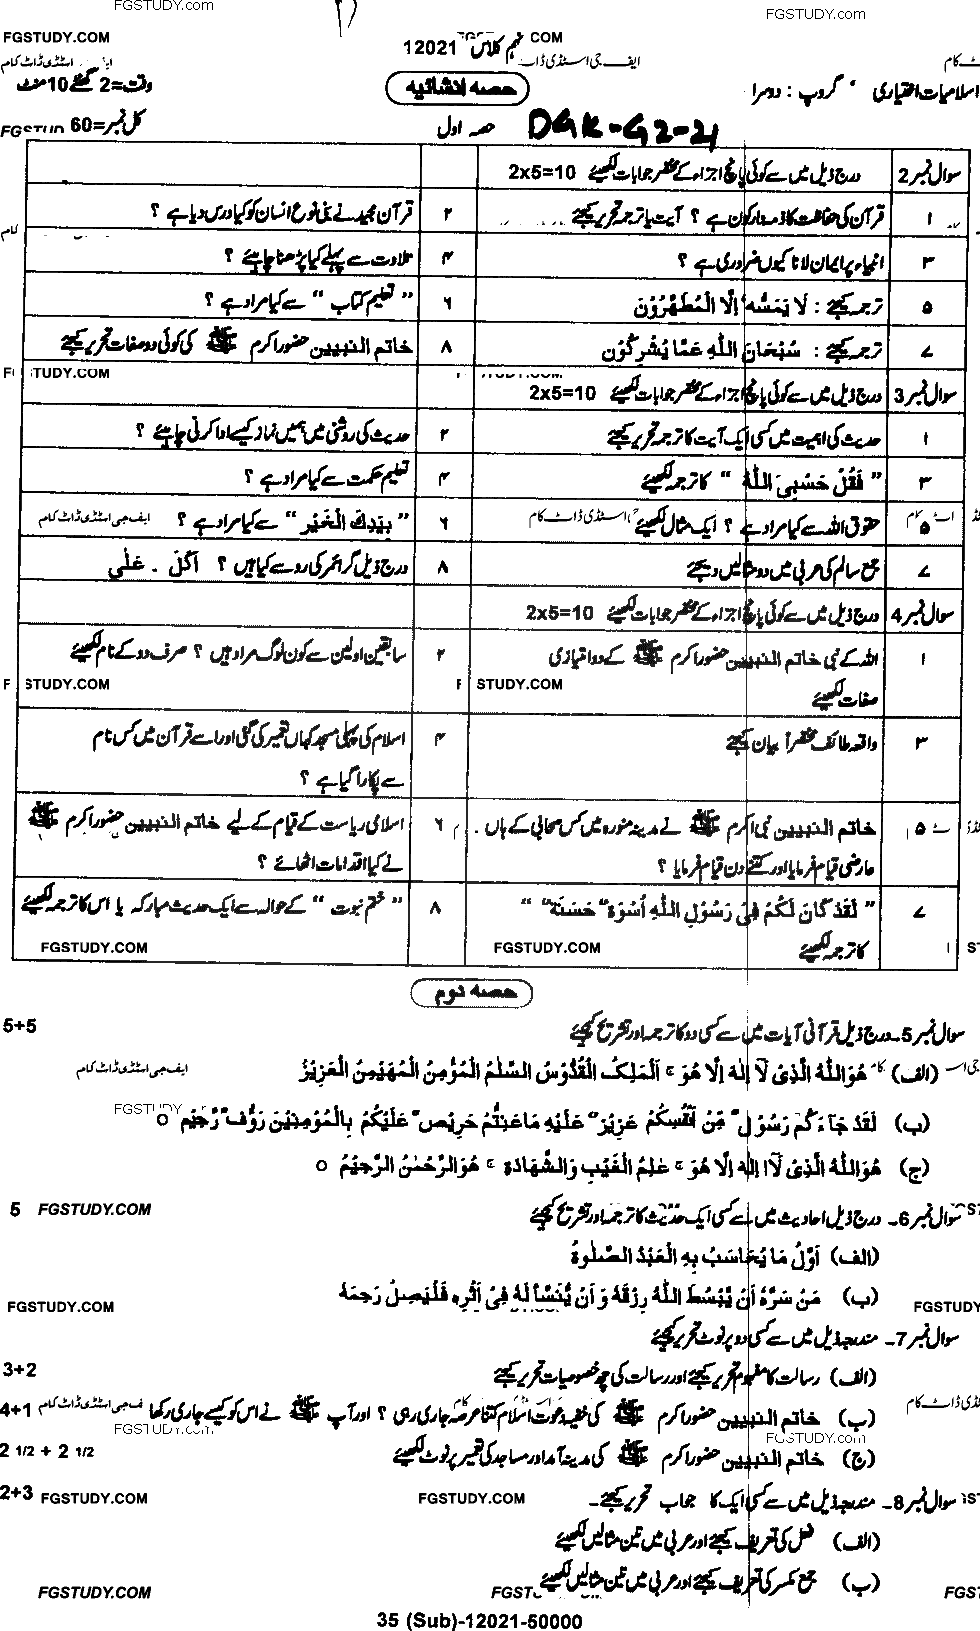 FGSTUDY.COM
FGSTUDY.com
FGSTUDY.COM
نہم کلاس 12021
COM
ایف جی اسٹڈی ڈاٹ کام
اسٹڈی ڈاٹ کام
اسلامیات اختیاری گروپ : دوسرا
حصہ انشائیہ
وقت=2 گھنٹے 10 منٹ
حصہ اول
DGK-G2-21
کل نمبر=60
سوال نمبر 2 درج ذیل میں سے کوئی پانچ اجزاء کے مختصر جوابات لکھیئے 2x5=10
۱ قرآن کی حفاظت کا ذمہ دار کون ہے ؟ آیت یا ترجمہ تحریر کیجئے
۲ قرآن مجید نے بنی نوع انسان کو کیا درس دیا ہے ؟
۳ انبیاء پر ایمان لانا کیوں ضروری ہے ؟
۴ تلاوت سے پہلے کیا پڑھنا چاہیئے ؟
۵ ترجمہ کیجئے : لَا يَمَسُّهٗ اِلَّا الْمُطَهَّرُوْنَ
۶ “ تعلیم کتاب ” سے کیا مراد ہے ؟
۷ ترجمہ کیجئے : سُبْحَانَ اللّٰهِ عَمَّا يُشْرِكُوْن
۸ خاتم النبیین حضور اکرم ﷺ کی کوئی دو صفات تحریر کیجئے
STUDY.COM
سوال نمبر 3 درج ذیل میں سے کوئی پانچ اجزاء کے مختصر جوابات لکھیئے 2x5=10
۱ حدیث کی اہمیت میں کسی ایک آیت کا ترجمہ تحریر کیجئے
۲ حدیث کی روشنی میں ہمیں نماز کیسے ادا کرنی چاہیئے ؟
۳ “ فَقُلْ حَسْبِيَ اللّٰهُ ” کا ترجمہ لکھیئے
۴ تعلیم حکمت سے کیا مراد ہے ؟
۵ حقوق اللہ سے کیا مراد ہے ؟ ایک مثال لکھیئے
۶ “ بِيَدِكَ الْخَيْر ” سے کیا مراد ہے ؟ ایف جی اسٹڈی ڈاٹ کام
۷ جمع سالم کی عربی میں دو مثالیں دیجئے
۸ درج ذیل گرائمر کی رو سے کیا ہیں ؟ اَكَلَ ۔ عَلٰى
سوال نمبر 4 درج ذیل میں سے کوئی پانچ اجزاء کے مختصر جوابات لکھیئے 2x5=10
۱ اللہ کے نبی خاتم النبیین حضور اکرم ﷺ کے دو امتیازی
صفات لکھیئے
۲ سابقین اولین سے کون لوگ مراد ہیں ؟ صرف دو کے نام لکھیئے
STUDY.COM
STUDY.COM
۳ واقعہ طائف مختصراً بیان کیجئے
۴ اسلام کی پہلی مسجد کہاں تعمیر کی گئی اور اسے قرآن میں کس نام
سے پکارا گیا ہے ؟
۵ خاتم النبیین نبی اکرم ﷺ نے مدینہ منورہ میں کس صحابی کے ہاں
عارضی قیام فرمایا اور کتنے دن قیام فرمایا ؟
۶ اسلامی ریاست کے قیام کے لیے خاتم النبیین حضور اکرم ﷺ
نے کیا اقدامات اٹھائے ؟
۷ “ لَقَدْ كَانَ لَكُمْ فِيْ رَسُوْلِ اللّٰهِ اُسْوَةٌ حَسَنَةٌ ”
کا ترجمہ لکھیئے
۸ “ ختم نبوت ” کے حوالہ سے ایک حدیث مبارکہ یا اس کا ترجمہ لکھیئے
FGSTUDY.COM
FGSTUDY.COM
حصہ دوم
سوال نمبر 5۔ درج ذیل قرآنی آیات میں سے کسی دو کا ترجمہ اور تشریح کیجئے 5+5
(الف) هُوَ اللّٰهُ الَّذِيْ لَآ اِلٰهَ اِلَّا هُوَ ۚ اَلْمَلِكُ الْقُدُّوْسُ السَّلٰمُ الْمُؤْمِنُ الْمُهَيْمِنُ الْعَزِيْزُ
ایف جی اسٹڈی ڈاٹ کام
FGSTUDY
(ب) لَقَدْ جَآءَكُمْ رَسُوْلٌ مِّنْ اَنْفُسِكُمْ عَزِيْزٌ عَلَيْهِ مَا عَنِتُّمْ حَرِيْصٌ عَلَيْكُمْ بِالْمُؤْمِنِيْنَ رَءُوْفٌ رَّحِيْمٌ ○
(ج) هُوَ اللّٰهُ الَّذِيْ لَآ اِلٰهَ اِلَّا هُوَ ۚ عٰلِمُ الْغَيْبِ وَالشَّهَادَةِ ۚ هُوَ الرَّحْمٰنُ الرَّحِيْمُ ○
سوال نمبر 6۔ درج ذیل احادیث میں سے کسی ایک حدیث کا ترجمہ اور تشریح کیجئے 5
FGSTUDY.COM
(الف) اَوَّلُ مَا يُحَاسَبُ بِهِ الْعَبْدُ الصَّلٰوةُ
(ب) مَنْ سَرَّهٗ اَنْ يُّبْسَطَ اللّٰهُ رِزْقَهٗ وَ اَنْ يُّنْسَأَ لَهٗ فِيْ اَثَرِهٖ فَلْيَصِلْ رَحِمَهٗ
FGSTUDY.COM
FGSTUDY
سوال نمبر 7۔ مندرجہ ذیل میں سے کسی دو پر نوٹ تحریر کیجئے
(الف) رسالت کا مفہوم تحریر کیجئے اور رسالت کی چھ خصوصیات تحریر کیجئے 3+2
(ب) خاتم النبیین حضور اکرم ﷺ کی خفیہ دعوت اسلام کتنا عرصہ جاری رہی ؟ اور آپ ﷺ نے اس کو کیسے جاری رکھا 4+1
FGSTUDY.com
FGSTUDY.com
(ج) خاتم النبیین حضور اکرم ﷺ کی مدینہ آمد اور مساجد کی تعمیر پر نوٹ لکھیئے 2 1/2 + 2 1/2
سوال نمبر 8۔ مندرجہ ذیل میں سے کسی ایک کا جواب تحریر کیجئے۔ 2+3
FGSTUDY.COM
FGSTUDY.COM
(الف) فعل کی تعریف کیجئے اور عربی میں تین مثالیں لکھیئے
(ب) جمع مکسر کی تعریف کیجئے اور عربی میں تین مثالیں لکھیئے
FGSTUDY.COM
35 (Sub)-12021-50000